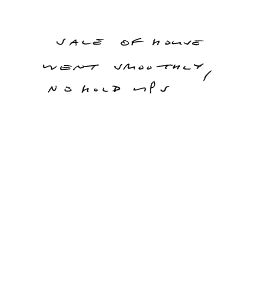 SALE OF HOUSE
WENT SMOOTHLY,
NO HOLD UPS